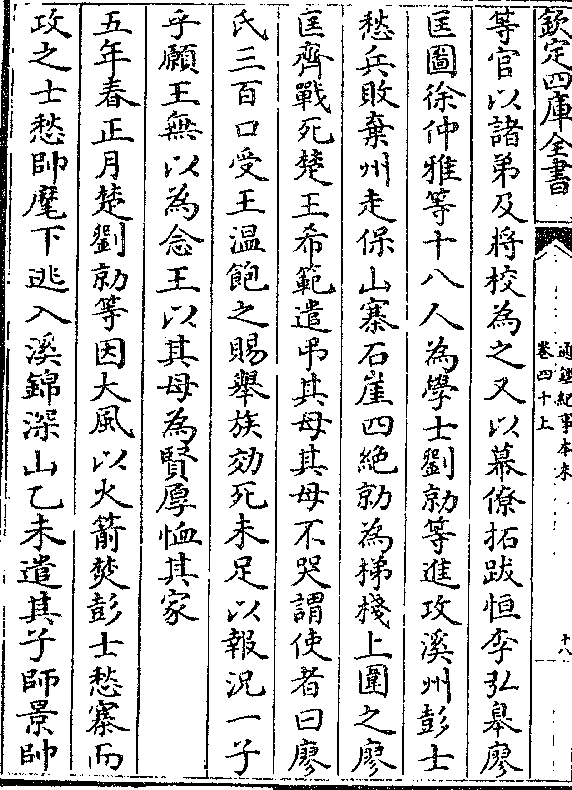 欽定四庫全書
通鑑紀事本末
卷四十上
十八
等官以諸弟及將校為之又以幕僚拓跋恒李弘臯廖
匡圖徐仲雅等十八人為學士劉勍等進攻溪州彭士
愁兵敗棄州走保山寨石崖四絶勍為梯棧上圍之廖
匡齊戰死楚王希範遣弔其母其母不哭謂使者曰廖
氏三百口受王温飽之賜舉族効死未足以報況一子
乎願王無以為念王以其母為賢厚恤其家
五年春正月楚劉勍等因大風以火箭焚彭士愁寨而
攻之士愁帥麾下逃入溪錦深山乙未遣其子師暠帥